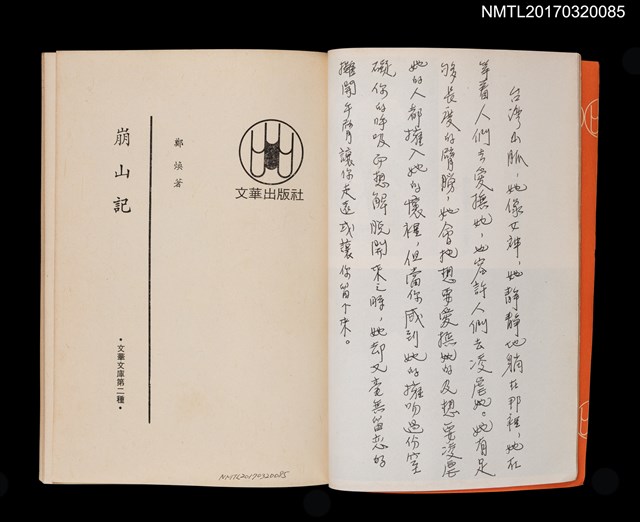 NMTL20170320085
台灣山脈,她像女神,她靜靜地躺在那裡,她在
等着人們去愛撫她,也容許人們去凌辱她。她有足
够長度的臂膀,她會把想要愛撫她的及想要凌辱
她的人都擁入她的懷裡,但當你感到她的擁吻過份窒
礙你的呼吸而想解脫開來之時,她却又毫無留戀的
攤開手臂讓你走遠或讓你留下來。
文華出版社
鄭煥著
崩山記
•文華文庫第二種•
NMTL20170320085